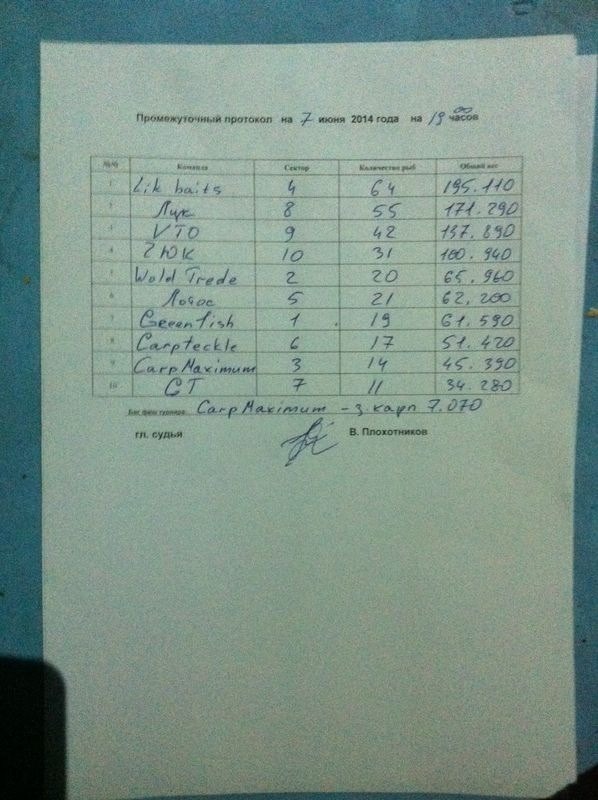 Промежуточный протокол на 7 июня 2014 года на 19 00 часов
№№ Команда Сектор Количество рыб Общий вес
1 Lik baits 4 64 195.110
2 Лцк 8 55 171.290
3 VTO 9 42 137.890
4 2ЮК 10 31 100.940
5 Wold Trede 2 20 65.960
6 Лотос 5 21 62.200
7 Greenfish 1 19 61.590
8 Carpteckle 6 17 51.420
9 Carp Maximum 3 14 45.390
10 GT 7 11 34.280
Биг фиш турнира: Carp Maximum - з. карп 7.070
гл. судья В. Плохотников